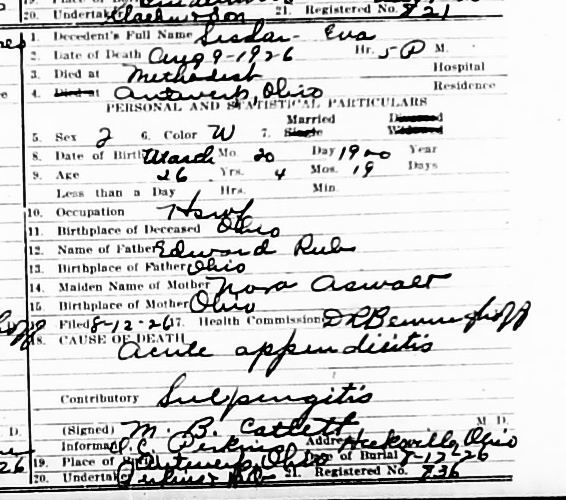 20. Undertak Clachn & Son 21. Registered No. 921
1. Decedent's Full Name Lisdar- Eva
2. Date of Death Aug 9-1926 Hr. 5 P M.
3. Died at Methodist Hospital
4. Died at Antwerp, Ohio Residence
PERSONAL AND STATISTICAL PARTICULARS
Married Divorced
5. Sex 2 6. Color W 7. Single Widowed
8. Date of Birth March Mo. 20 Day 1900 Year
9. Age 26 Yrs. 4 Mos. 19 Days
Less than a Day Hrs. Min.
10. Occupation Hswf
11. Birthplace of Deceased Ohio
12. Name of Father Edward Rub
13. Birthplace of Father Ohio
14. Maiden Name of Mother Nora Aswalt
15. Birthplace of Mother Ohio
Filed 8-12-26 17. Health Commission D R Benninghoff
18. CAUSE OF DEATH
Acute appendisitis
Contributory Sulpengitis
D. (Signed) M. B. Catlett M D.
Informan O. C. Perkins Addre Hicksville, Ohio
26 19. Place of Antwerp, Ohio Date of Burial 8-12-26
20. Undertak Perkins & Co 21. Registered No. 936